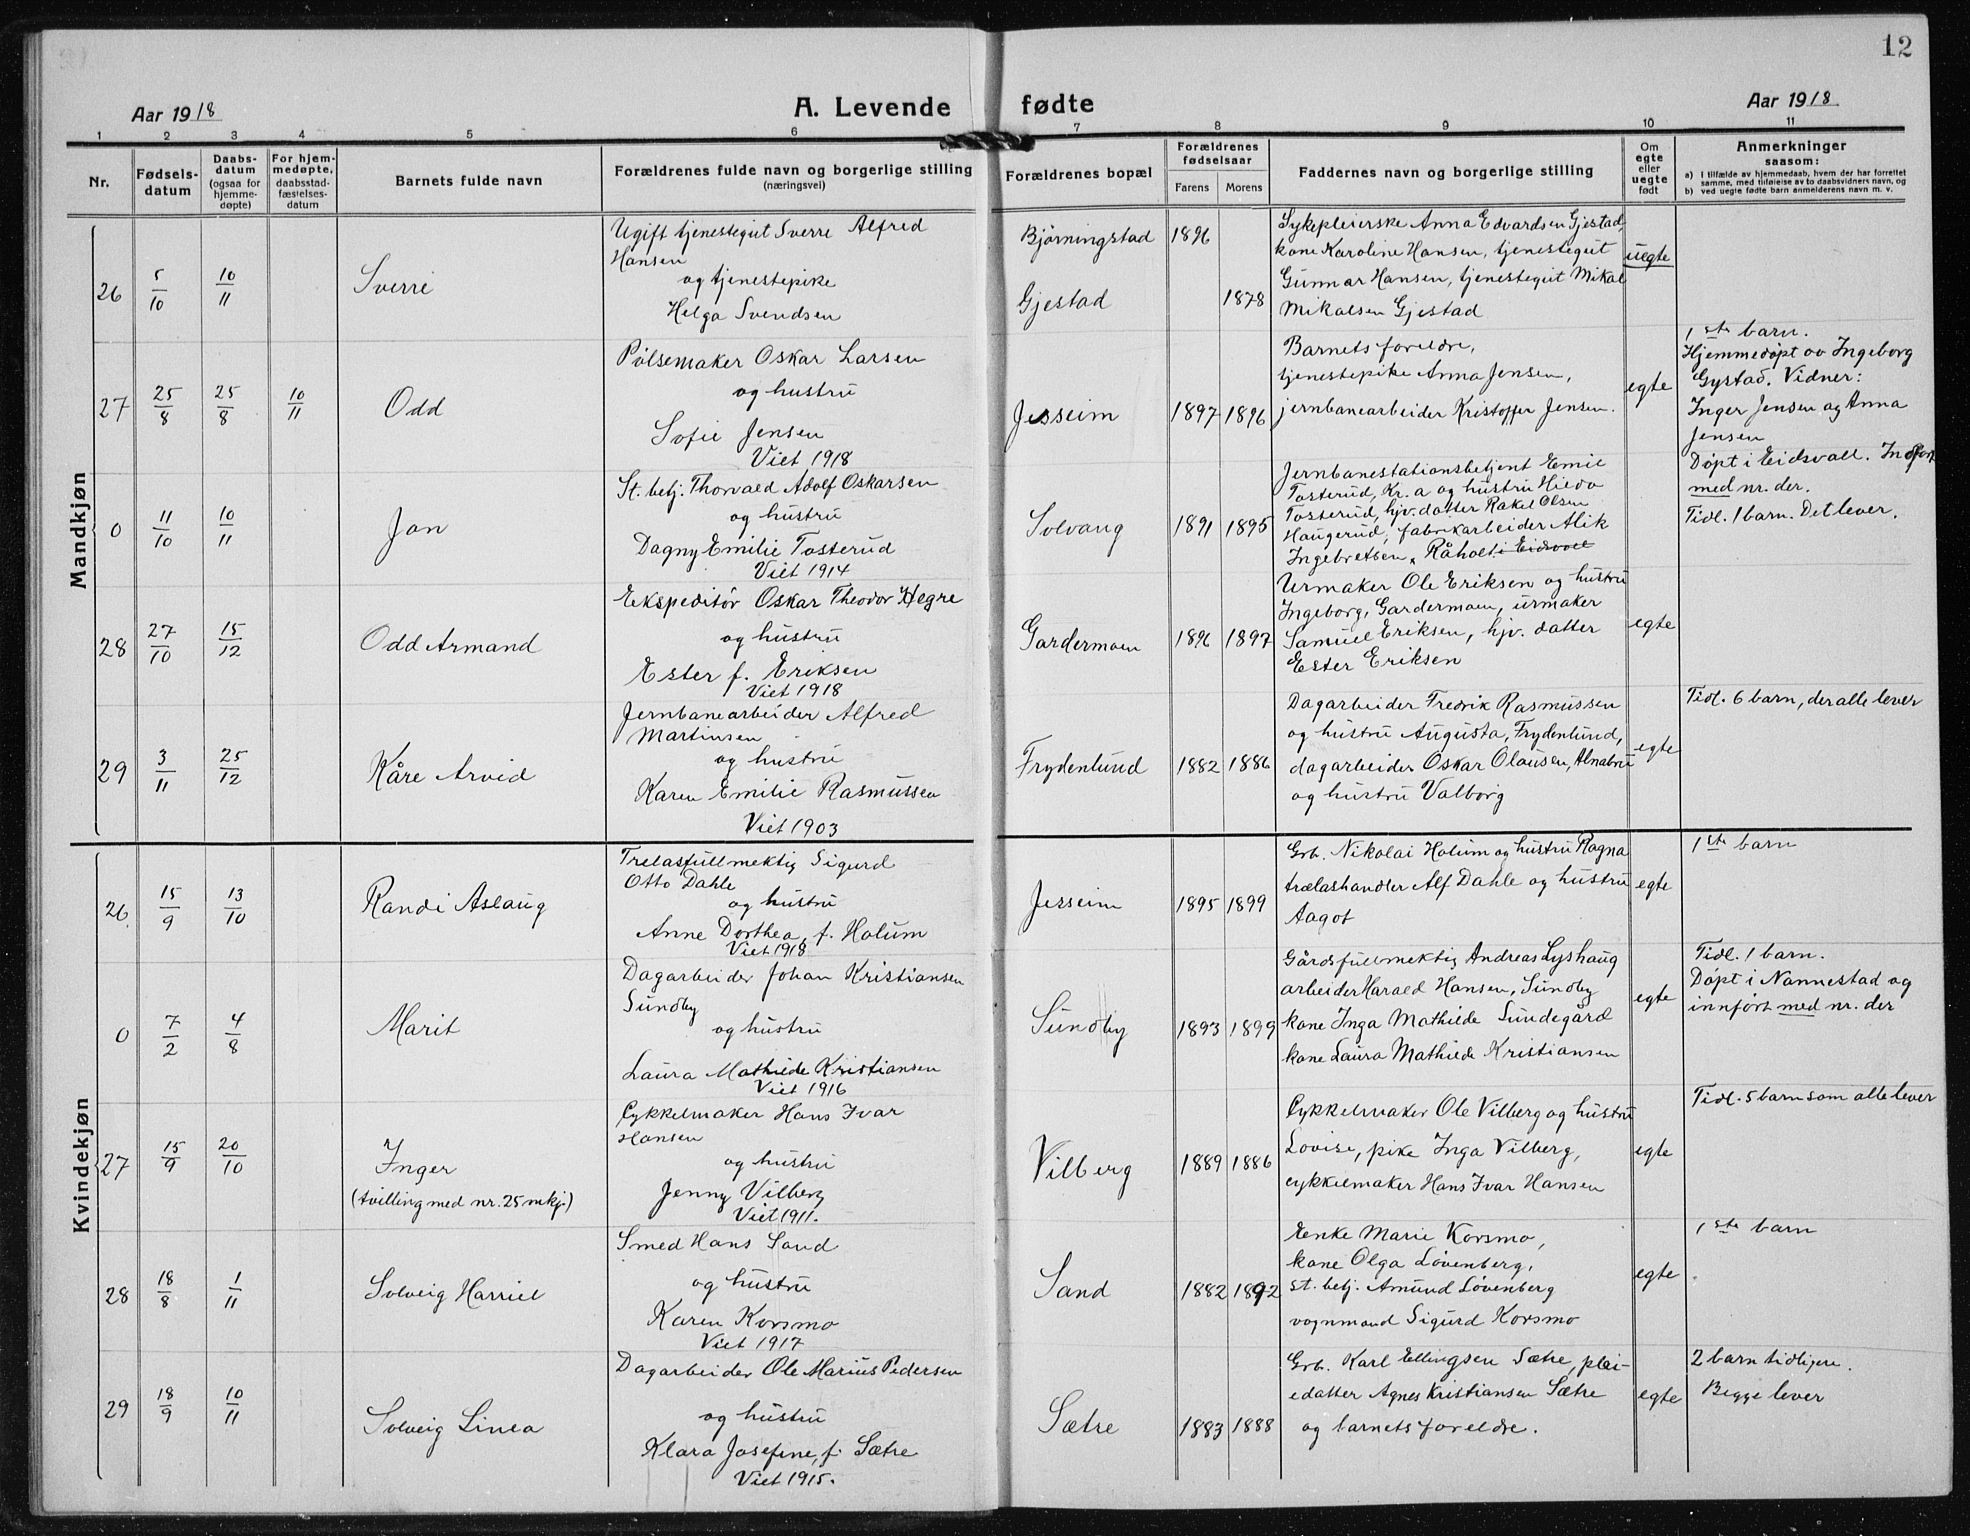 12
Aar 1918
A. Levende fødte
Aar 1918
1 2 3 4 5 6 7 8 9 10 11
Nr.
Fødsels-
datum
Daabs-
datum
(ogsaa for
hjemme-
døpte)
For hjem-
medøpte,
daabsstad-
fæstelses-
datum
Barnets fulde navn
Forældrenes fulde navn og borgerlige stilling
(næringsvei)
Forældrenes bopæl
Forældrenes
fødselsaar
Farens Morens
Faddernes navn og borgerlige stilling
Om
egte
eller
uegte
født
Anmerkninger
saasom:
a) I tilfælde av hjemmedaab, hvem der har forrettet
samme, med tilføielse av to daabsvidners navn, og
b) ved uegte fødte barn anmelderens navn m. v.
Mandkjøn
26
5/10
10/11
Sverre
Ugift tjenestegut Sverre Alfred
Hansen
og tjenestepike
Helga Svendsen
Bjørningstad
Gjestad
1896
1878
Sykepleierske Anna Edvardsen Gjestad,
kone Karoline Hansen, tjenestegut
Gunnar Hansen, tjenestegut Mikal
Mikalsen Gjestad
uegte
27
25/8
25/8
10/11
Odd
Pølsemaker Oskar Larsen
og hustru
Sofie Jensen
Viet 1918
Jesseim
1897 1896
Barnets foreldre,
tjenestepike Anna Jensen,
jernbanearbeider Kristoffer Jensen.
egte
1ste barn.
Hjemmedøpt av Ingeborg
Gystad. Vidner:
Inger Jensen og Anna
Jensen
0
11/10
10/11
Jan
St. betj. Thorvald Adolf Oskarsen
og hustru
Dagny Emilie Tosterud
Viet 1914
Solvang
1891 1895
Jernbanestationsbetjent Emil
Tosterud, Kr.a og hustru Hilda
Tosterud, hjv. datter Rakel Olsen
Haugerud, fabrikarbeider Alik
Ingebretsen, Råholt i Eidsvoll
Døpt i Eidsvall. Indført
med nr. der.
Tidl. 1 barn. Det lever.
28
27/10
15/12
Odd Armand
Ekspeditør Oskar Theodor Hegre
og hustru
Ester f. Eriksen
Viet 1918
Gardermoen
1896 1897
Urmaker Ole Eriksen og hustru
Ingeborg, Gardermoen, urmaker
Samuel Eriksen, hjv. datter
Ester Eriksen
egte
29
3/11
25/12
Kåre Arvid
Jernbanearbeider Alfred
Martinsen
og hustru
Karen Emilie Rasmussen
Viet 1903
Frydenlund
1882 1886
Dagarbeider Fredrik Rasmussen
og hustru Augusta, Frydenlund,
dagarbeider Oskar Olausen, Alnabru
og hustru Valborg
egte
Tidl. 6 barn, der alle lever
Kvindekjøn
26
15/9
13/10
Randi Aslaug
Trelastfullmektig Sigurd
Otto Dahle
og hustru
Anne Dorthea, f. Holum
Viet 1918
Jesseim
1895 1899
Grb. Nikolai Holum og hustru Ragna
trælashandler Alf Dahle og hustru
Aagot
egte
1ste barn
0
7/2
4/8
Marit
Dagarbeider Johan Kristiansen
Sundby
og hustru
Laura Mathilde Kristiansen
Viet 1916
Sundby
1893 1899
Gårdsfullmektig Andreas Lyshaug
arbeider Harald Hansen, Sundby
kone Inga Mathilde Sundegård
kone Laura Mathilde Kristiansen
egte
Tidl. 1 barn.
Døpt i Nannestad og
innført med nr. der
27
15/9
20/10
Inger
(tvilling med nr. 25 mkj.)
Cykkelmaker Hans Ivar
Hansen
og hustru
Jenny Vilberg
Viet 1911.
Vilberg
1889 1886
Cykkelmaker Ole Vilberg og hustru
Lovise, pike Inga Vilberg,
cykkelmaker Hans Ivar Hansen
egte
Tidl. 5 barn som alle lever
28
18/8
1/11
Solveig Harriet
Smed Hans Sand
og hustru
Karen Korsmo
Viet 1917
Sand
1882 1892
Enke Marie Korsmo,
kone Olga Løvenberg,
st. betj. Amund Løvenberg
vognmand Sigurd Korsmo
egte
1ste barn
29
18/9
10/11
Solveig Linea
Dagarbeider Ole Marius Pedersen
og hustru
Klara Josefine, f. Sætre
Viet 1915.
Sætre
1883 1888
Grb. Karl Ellingsen Sætre, plei-
edatter Agnes Kristiansen Sætre
og barnets foreldre.
egte
2 barn tidligere.
Begge lever